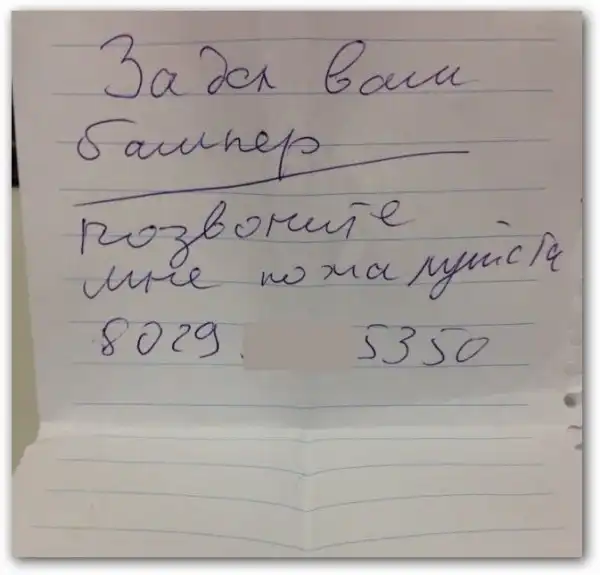 Задел ваш
бампер
позвоните
мне пожалуйста
8029 5350